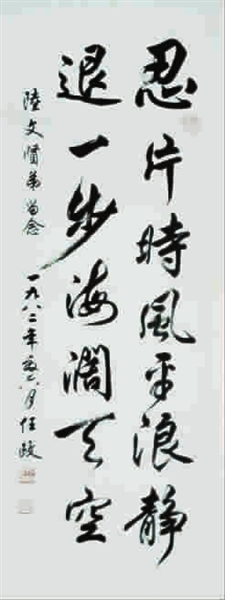 忍片時風平浪靜
退一步海闊天空
陸文賢弟留念
一九八二年六月任政